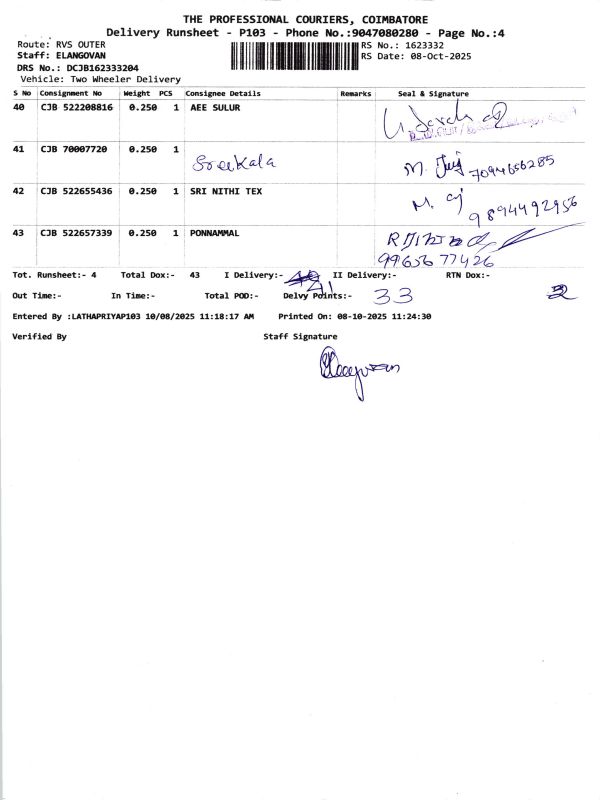 THE PROFESSIONAL COURIERS, COIMBATORE
Delivery Runsheet - P103 - Phone No.:9047080280 - Page No.:4
Route: RVS OUTER RS No.: 1623332
Staff: ELANGOVAN RS Date: 08-Oct-2025
DRS No.: DCJB162333204
Vehicle: Two Wheeler Delivery
S No Consignment No Weight PCS Consignee Details Remarks Seal & Signature
40 CJB 522208816 0.250 1 AEE SULUR
41 CJB 70007720 0.250 1 Sreekala M. 7094656285
42 CJB 522655436 0.250 1 SRI NITHI TEX M. 9894492956
43 CJB 522657339 0.250 1 PONNAMMAL
9965677426
Tot. Runsheet:- 4 Total Dox:- 43 I Delivery:- 41 II Delivery:- RTN Dox:- 2
Out Time:- In Time:- Total POD:- Delvy Points:- 33
Entered By :LATHAPRIYAP103 10/08/2025 11:18:17 AM Printed On: 08-10-2025 11:24:30
Verified By Staff Signature